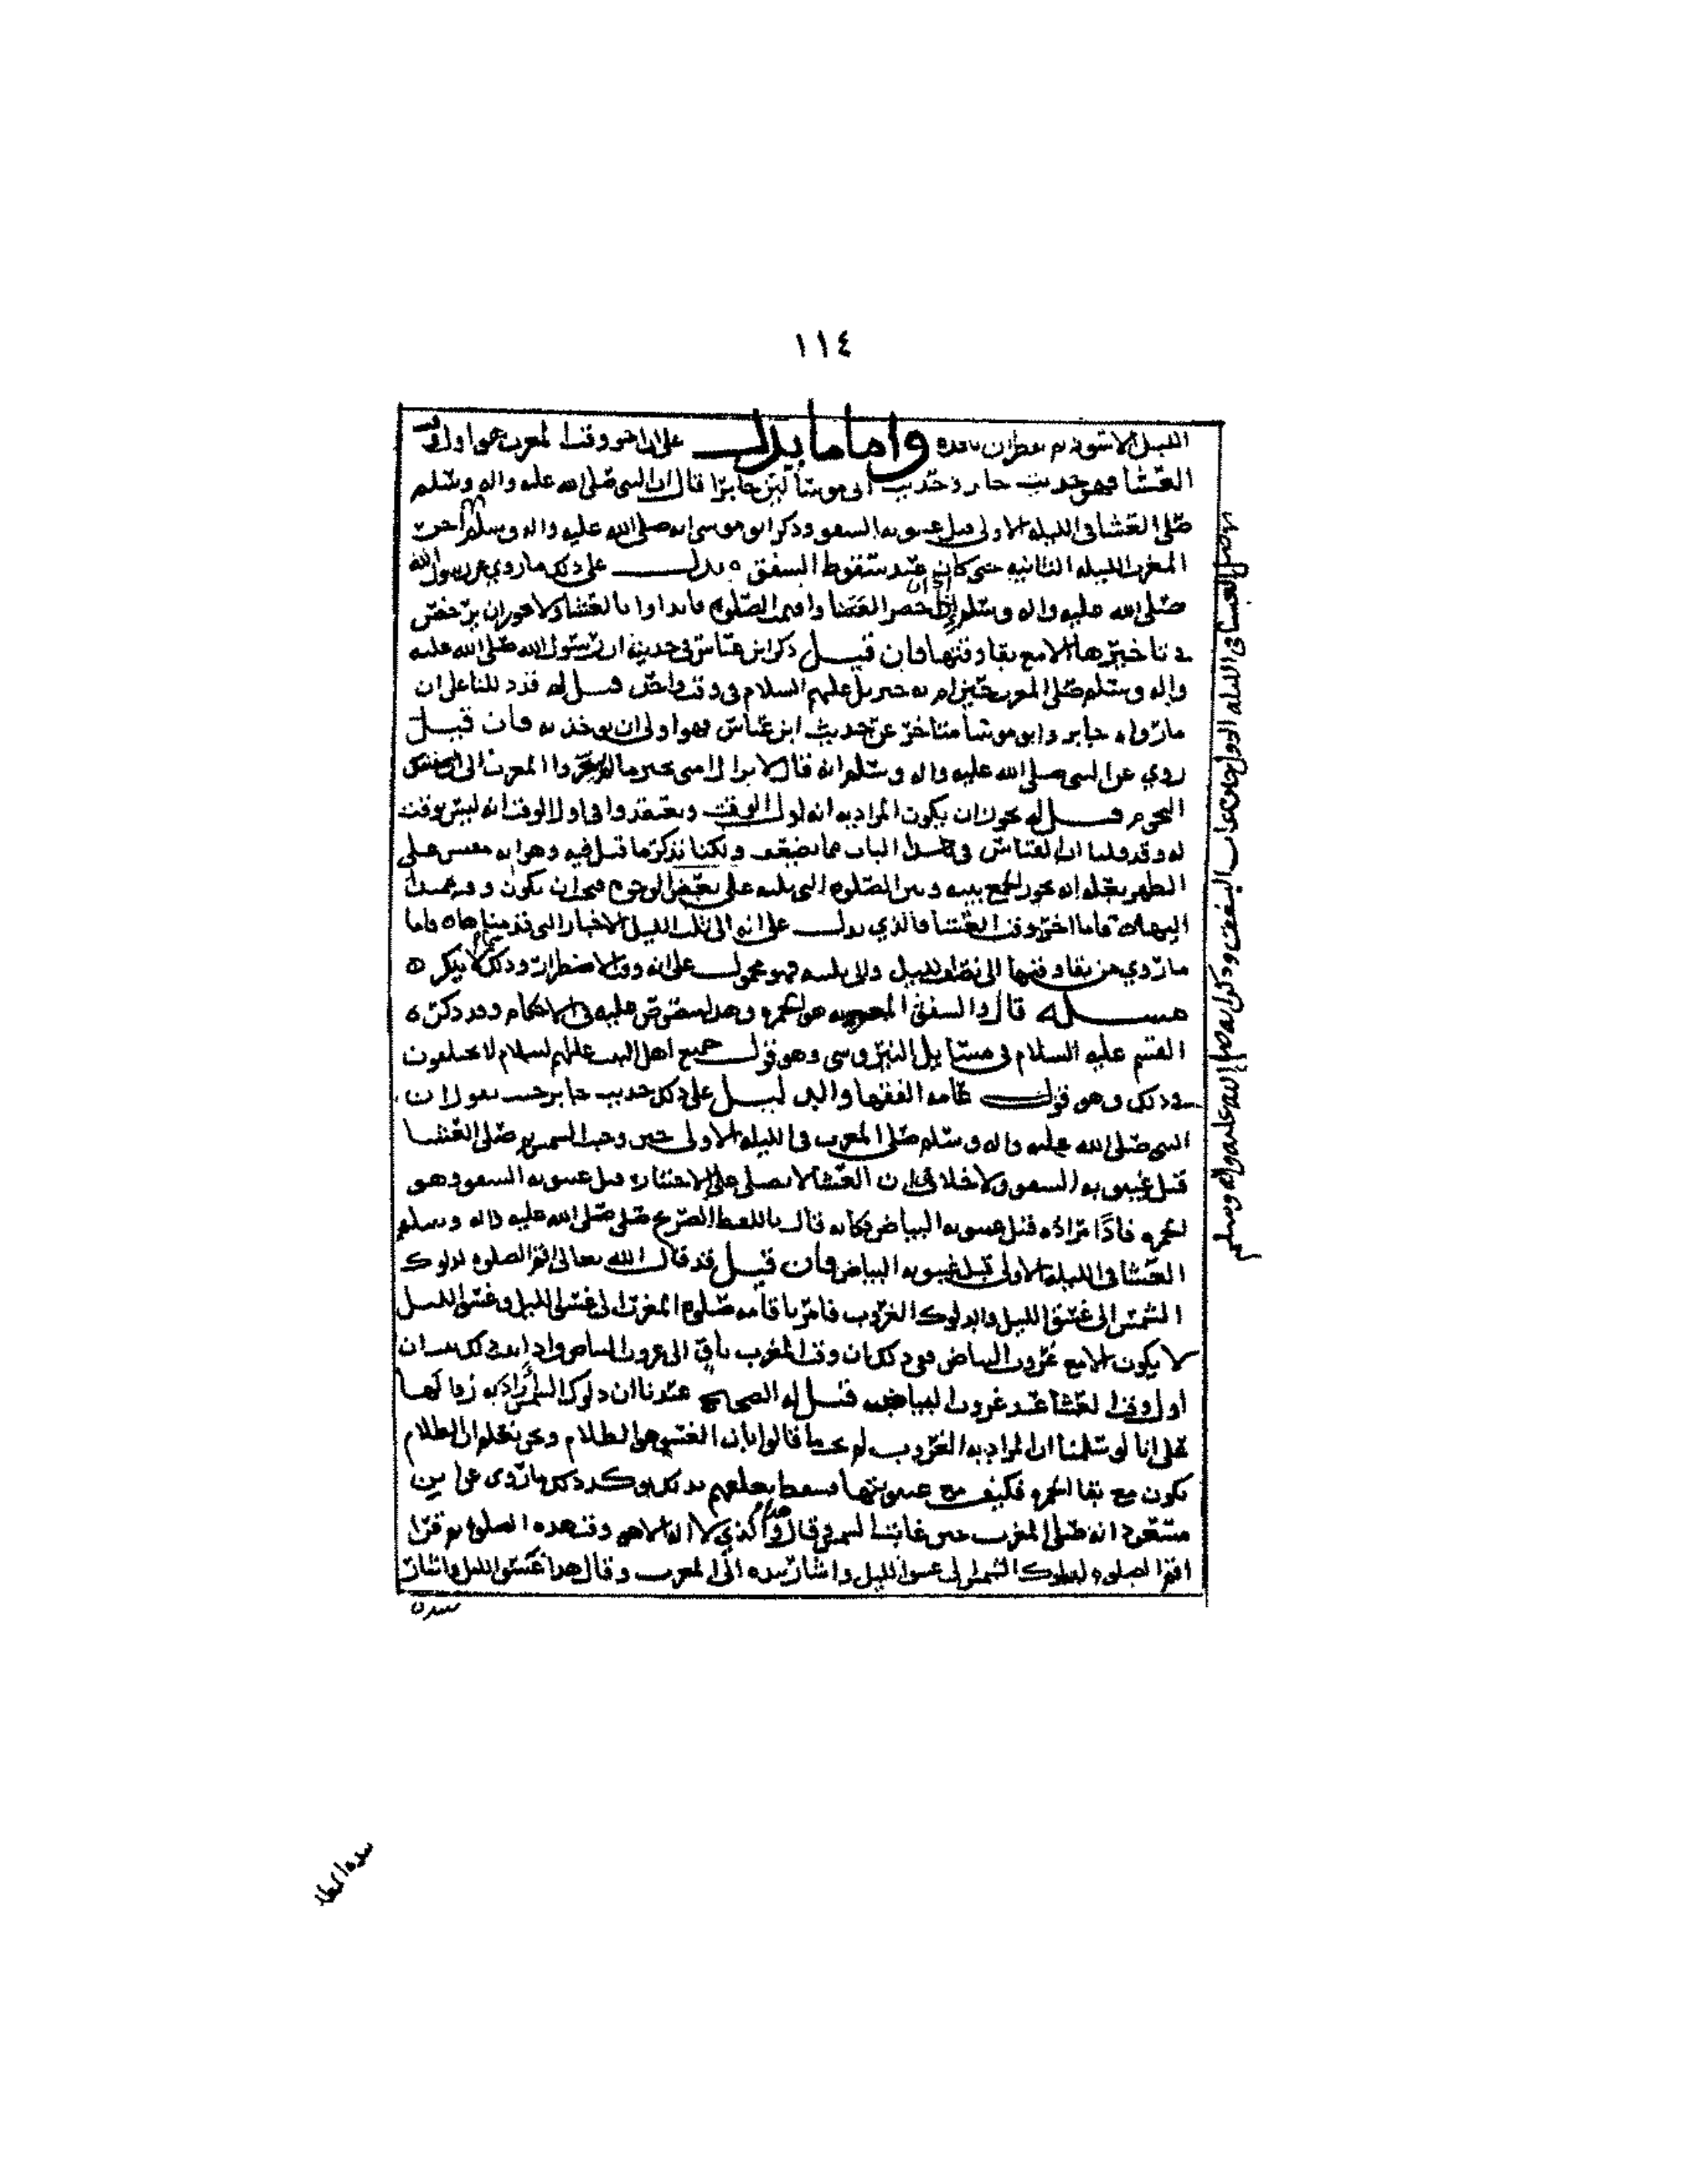 ١١٤
الليل الاسود ثم يفطران بعده واما ما يدل على ان اخر وقت المغرب هو اول وقت
العشا فهو حديث جابر وحديث ابي موسا لان جابرا قال ان النبي صلى الله عليه واله وسلم
صلى العشا في الليلة الاولى قبل غيبوبة الشفق وذكر ابو موسى انه صلى الله عليه واله وسلم اخر
المغرب الليلة الثانية حتى كان عند سقوط الشفق ويدل على ذلك ما روي عن رسول الله
صلى الله عليه واله وسلم اذا حضر العشا واقيمت الصلوة فابداوا بالعشا ولا يجوز ان يرخص
في تاخيرها الا مع بقا وقتها فان قيل ذكر ابن عباس في حديثه ان رسول الله صلى الله عليه
واله وسلم صلى المغرب حين ام به جبريل عليهم السلام في وقت واحد قيل له قد دللنا على ان
ما رواه جابر وابو موسا متاخر عن حديث ابن عباس فهو اولى ان يوخذ به فان قيل
روي عن النبي صلى الله عليه واله وسلم انه قال لا تزال امتي بخير ما لم يوخروا المغرب الى ان تشتبك
النجوم قيل له يجوز ان يكون المراد به انه اول الوقت ويعتقدوا في اول الوقت انه ليس بوقت
له وقد قلنا ان القياس في هذا الباب مما يضعف ولكنا نذكر ما قيل فيه وهو انه مقيس على
الظهر بعلة انه يجوز الجمع بينه وبين الصلوة التي تليه على بعض الوجوه فيجب ان يكون وقته ممتدا
اليها ه فاما اخر وقت العشا فالذي يدل على انه الى ثلث الليل الاخبار التي قدمناها ه واما
ما روي من بقا وقتها الى نصف الليل والى ثلثيه فهو محمول على انه وقت الاضطرار وذلك لا ينكر ه
مسئله قال والشفق المعمول به هو الحمرة وهذا منصوص عليه في الاحكام وقد ذكره
القسم عليه السلام في مسايل النيروسي وهو قول جميع اهل البيت عليهم السلام لا يختلفون
في ذلك وهو قول عامة الفقها والدليل على ذلك حديث جابر حيث يقول ان
النبي صلى الله عليه واله وسلم صلى المغرب في الليلة الاولى حين وجبت الشمس ثم صلى العشا
قبل غيبوبة الشفق ولا خلاف ان العشا لا يصلى على الاختيار قبل غيبوبة الشفق وهو
الحمرة فاذا مراده قبل غيبوبة البياض فكانه قال باللفظ الصريح صلى صلى الله عليه واله وسلم
العشا في الليلة الاولى قبل غيبوبة البياض فان قيل قد قال الله تعالى اقم الصلوة لدلوك
الشمس الى غسق الليل والدلوك الغروب فامر باقامة صلوة المغرب الى غسق الليل وغسق الليل
لا يكون الا مع غروب البياض فوجب ان وقت المغرب باق الى غروب البياض واذا ثبت ذلك ثبت ان
اول وقت العشا عند غروب البياض قيل له الصحيح عندنا ان دلوك الشمس المراد به زوالها
على انا لو سلمنا ان المراد به الغروب لم يجب ما قالوا لان الغسق هو الظلام ونحن نعلم ان الظلام
يكون مع بقا الحمرة فكيف مع غيبوبتها فسقط تعلقهم بذلك يوكد ذلك ما روى عن ابن
مسعود انه صلى المغرب حين غابت الشمس وقال هذا والذي لا اله الا هو وقت هذه الصلوة ثم قرا
اقم الصلوة لدلوك الشمس الى غسق الليل واشار بيده الى المغرب وقال هذا غسق الليل واشار
بيده
صلى العشا في الليلة الاولى حين غاب الشفق وذكر انه صلى الله عليه واله وسلم
بيده الى المطلع